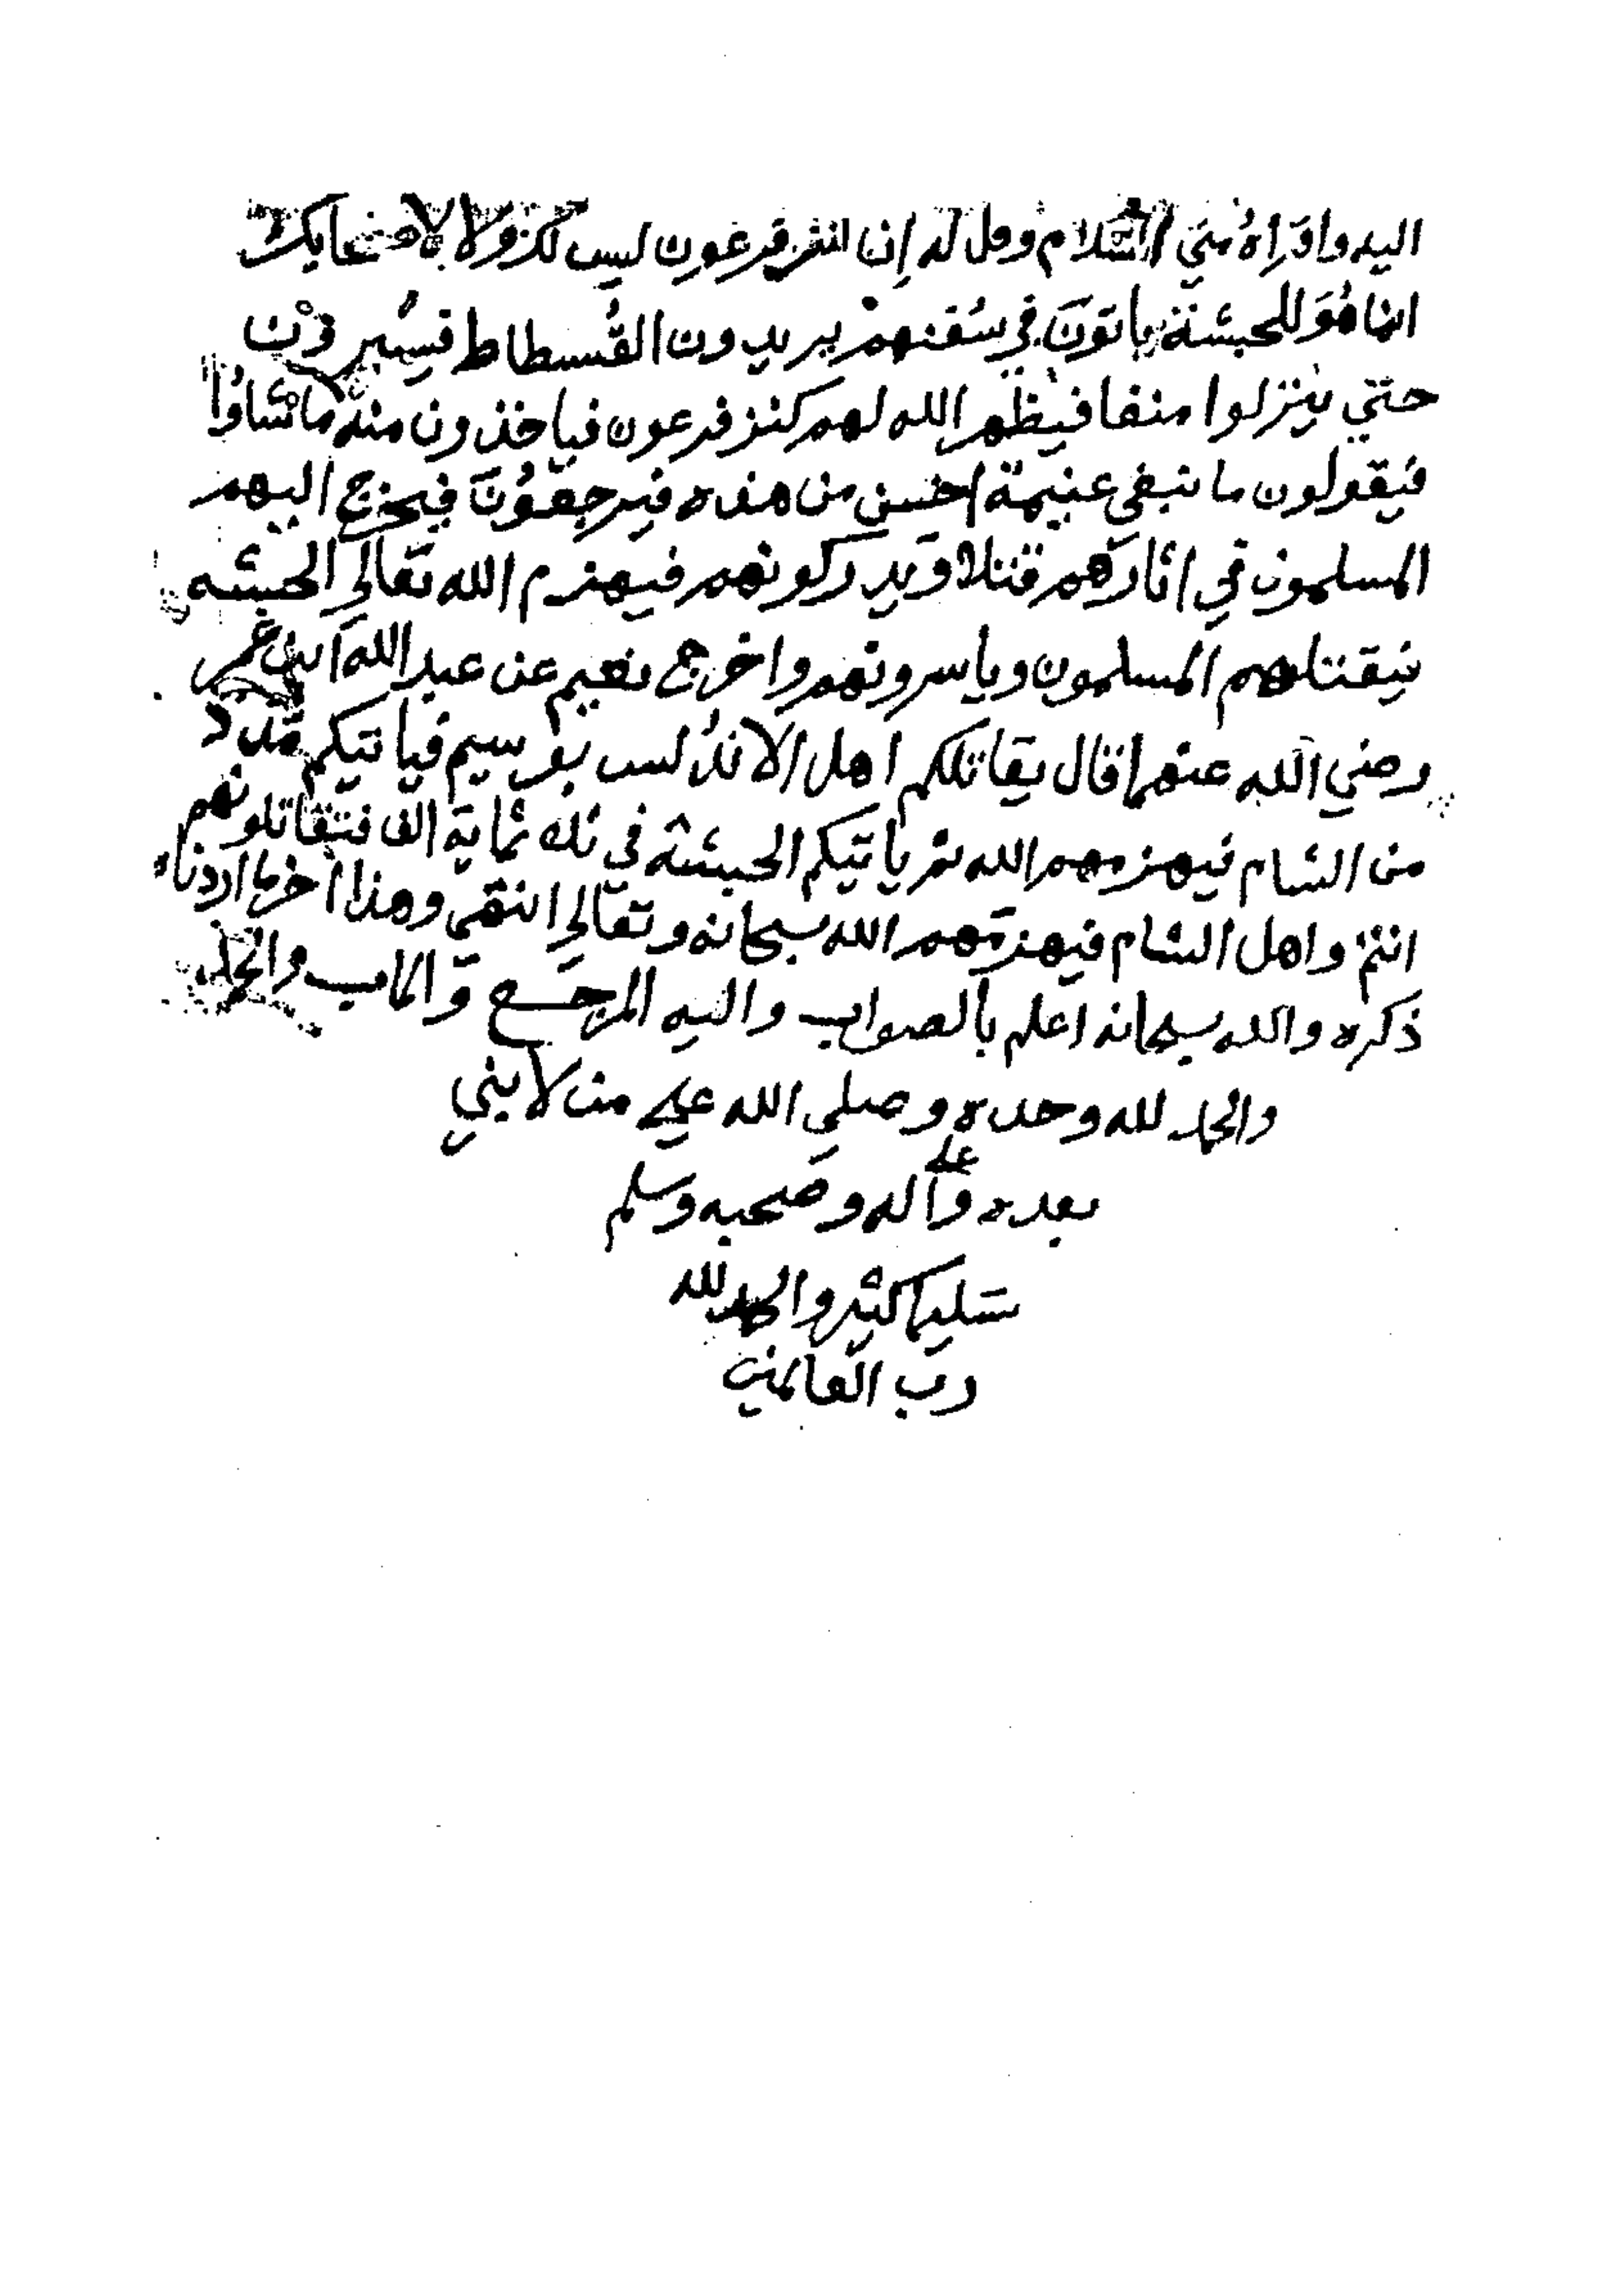 اليه واقراهُ مني السَّلام وقل له إن كنز فرعون ليس لك ولا لاصحابك
انما هُوَ للحبشة ياتونَ في سُفنهم يريدون الفُسطاط فيسُيرون
حتي ينزلوا منفا فيظهر الله لهم كنز فرعون فياخذون منه ماشاؤا
فيقولون ما نبغي غنيمة احسن من هذه فيرجعُونَ فيخرج اليهم
المسلمون في اثارهم قتلا ويدركونهم فيهزم الله تعالي الحبشه
فيقتلهم المسلمون وياسرونهم واخرج نعيم عن عبد الله ابن عمر
رضي الله عنهما قال يقاتلكم اهل الاندُلس بوسيم فياتيكم مدد
من الشام فيهزمهم الله ثم ياتيكم الحبشة في ثلاثماية الف فتقاتلونهم
انتم واهل الشام فيهزمهم الله سبحانه وتعالي انتهي وهذا اخر ما اردناه
ذكره والله سبحانه اعلم بالصواب واليه المرجع والماب والحمد
والحمد لله وحده وصلي الله علي من لا نبي
بعده وعلي اله وصحبه وسلم
تسليما كثيرا والحمد لله
رب العالمين